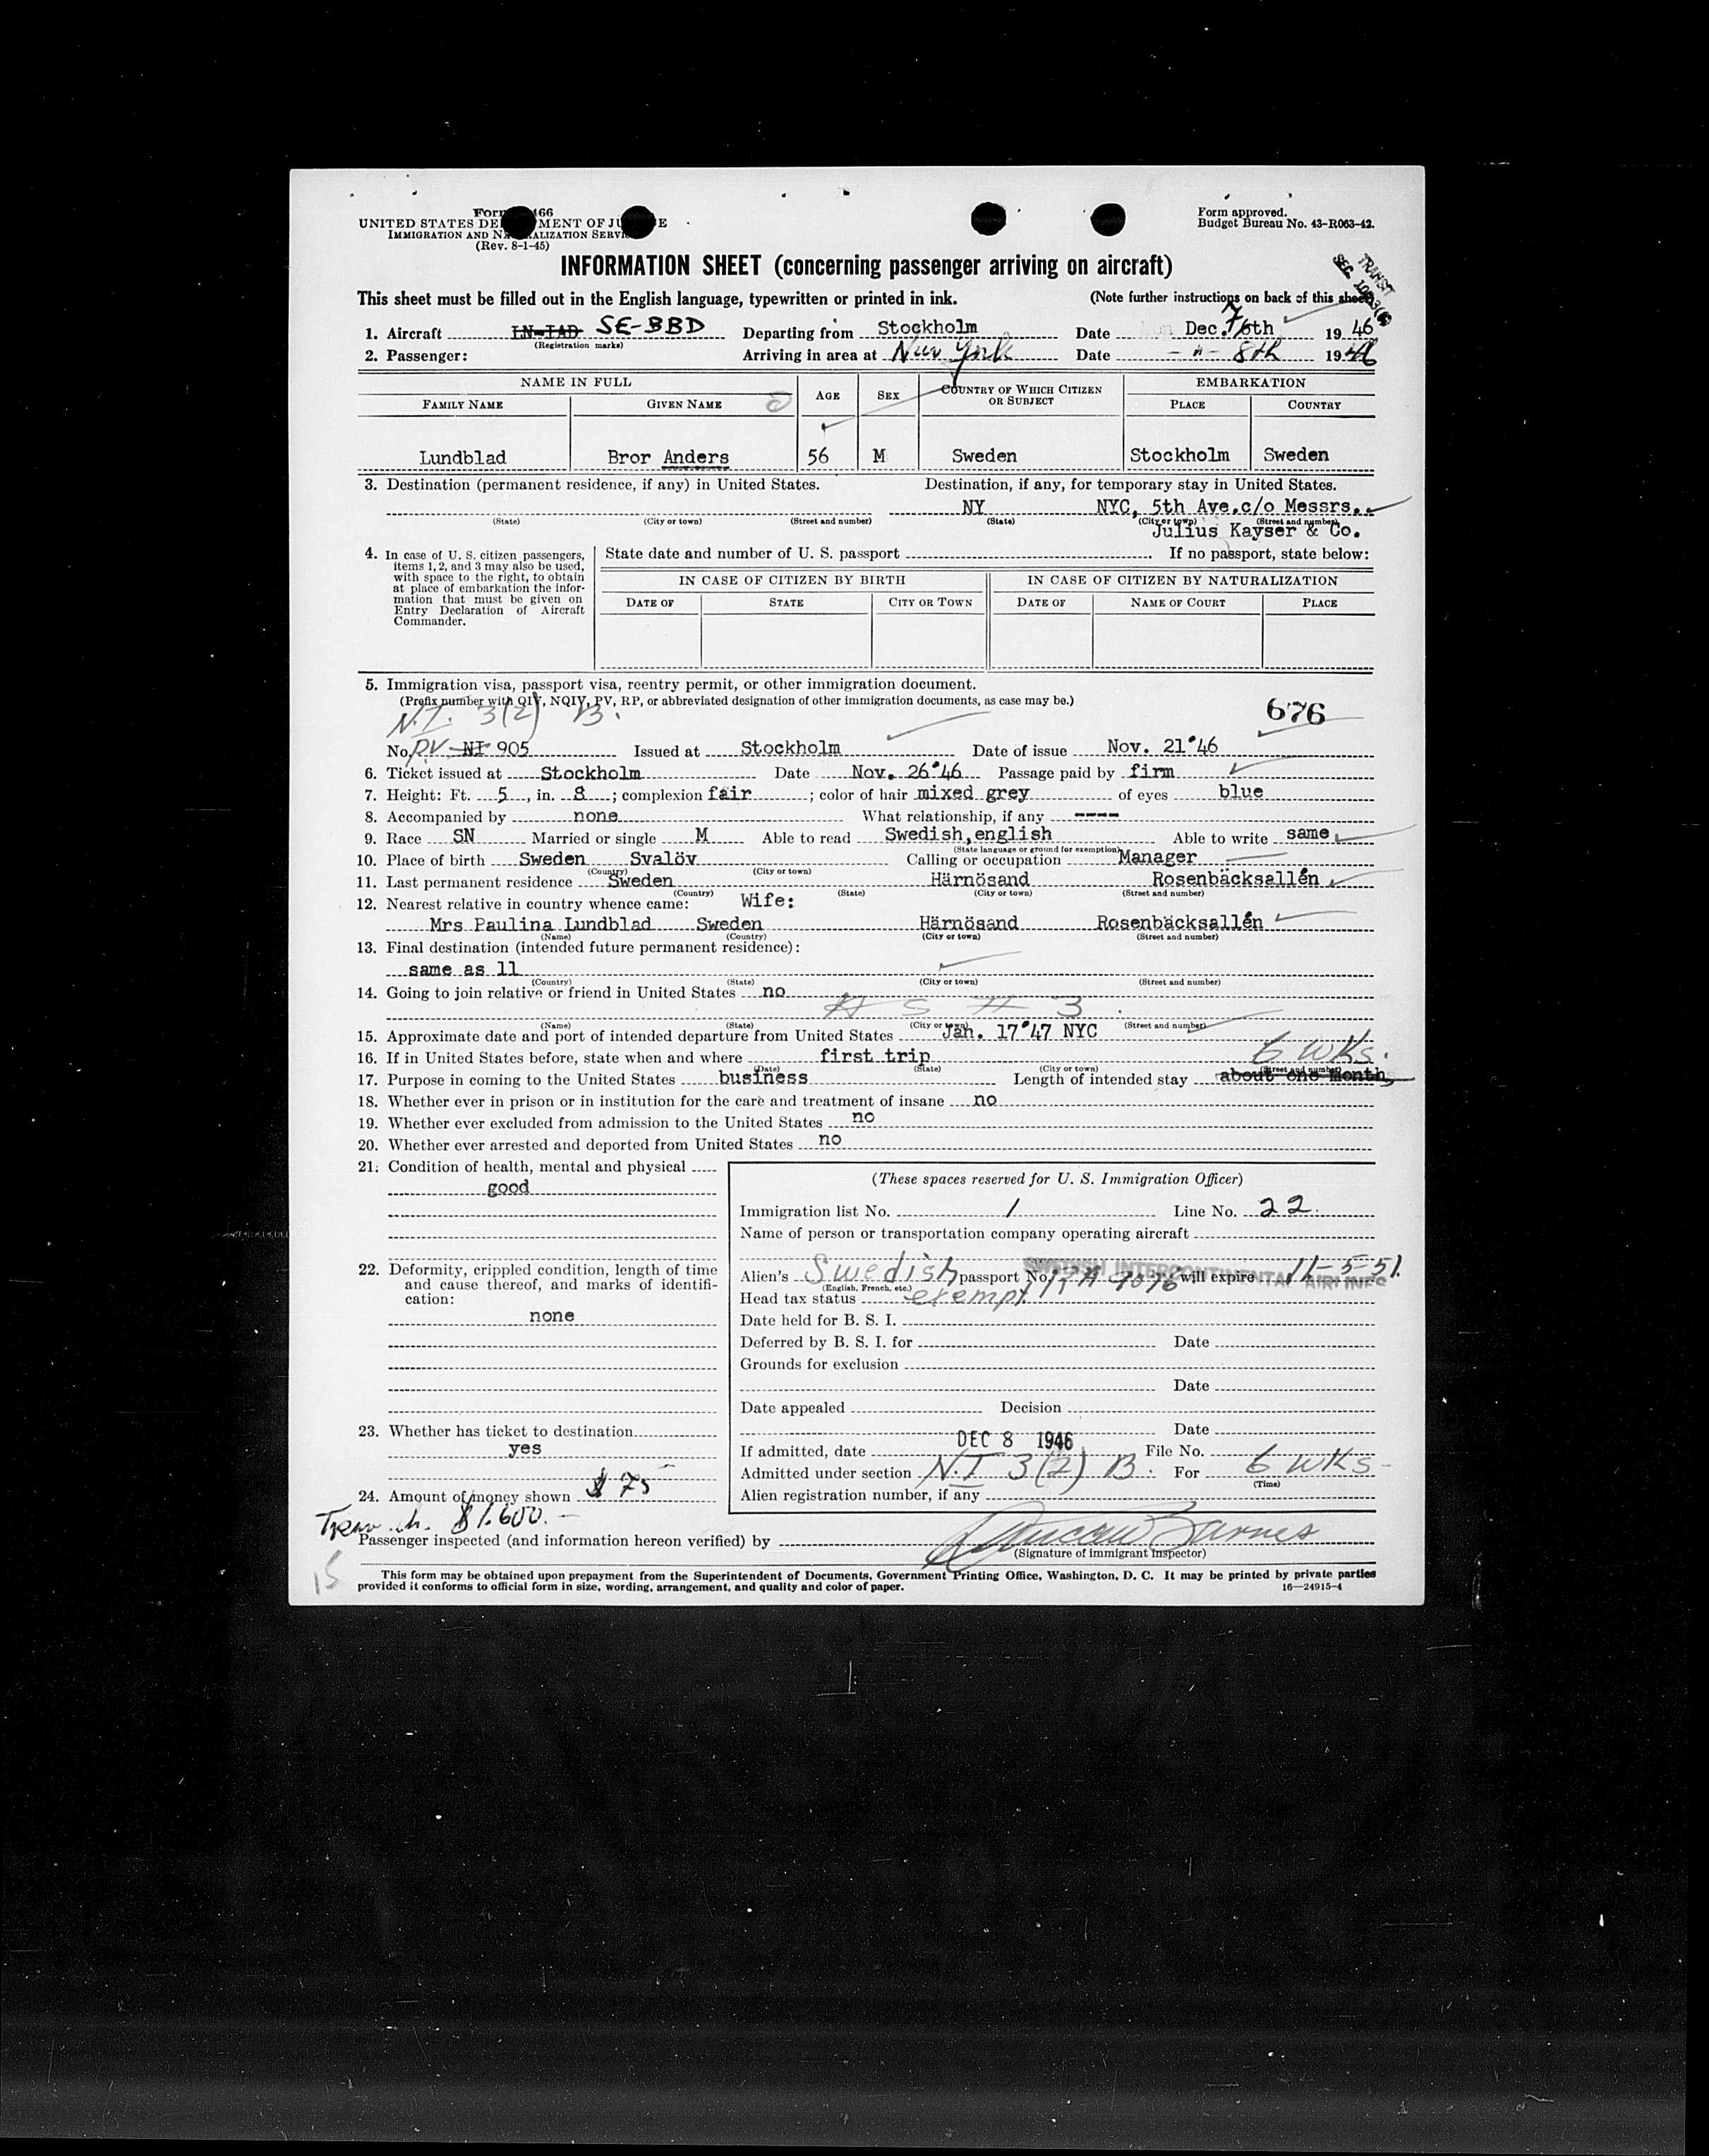 UNITED STATES DE MENT OF JU E
IMMIGRATION AND NA ALIZATION SERVI
(Rev. 8-1-45)
Form approved.
Budget Bureau No. 43-R063-42.
INFORMATION SHEET (concerning passenger arriving on aircraft)
TRANSIT
This sheet must be filled out in the English language, typewritten or printed in ink. (Note further instructions on back of this sheet)
1. Aircraft LN-IAD SE-BBD Departing from Stockholm Date Dec. 7 6th 1946
(Registration marks)
2. Passenger: Arriving in area at New York Date - " - 8th 1946
NAME IN FULL AGE SEX COUNTRY OF WHICH CITIZEN OR SUBJECT EMBARKATION
FAMILY NAME GIVEN NAME PLACE COUNTRY
Lundblad Bror Anders 56 M Sweden Stockholm Sweden
3. Destination (permanent residence, if any) in United States. Destination, if any, for temporary stay in United States.
NY NYC, 5th Ave.c/o Messrs.
(State) (City or town) (Street and number) (State) (City or town) (Street and number)
Julius Kayser & Co.
4. In case of U. S. citizen passengers, items 1, 2, and 3 may also be used, with space to the right, to obtain at place of embarkation the information that must be given on Entry Declaration of Aircraft Commander.
State date and number of U. S. passport If no passport, state below:
IN CASE OF CITIZEN BY BIRTH IN CASE OF CITIZEN BY NATURALIZATION
DATE OF STATE CITY OR TOWN DATE OF NAME OF COURT PLACE
5. Immigration visa, passport visa, reentry permit, or other immigration document.
(Prefix number with QIV, NQIV, PV, RP, or abbreviated designation of other immigration documents, as case may be.)
676
N.I. 3(2) B.
No. PV NI 905 Issued at Stockholm Date of issue Nov. 21'46
6. Ticket issued at Stockholm Date Nov. 26'46 Passage paid by firm
7. Height: Ft. 5, in. 8; complexion fair; color of hair mixed grey of eyes blue
8. Accompanied by none What relationship, if any ----
9. Race SN Married or single M Able to read Swedish,english Able to write same
(State language or ground for exemption)
10. Place of birth Sweden Svalöv Calling or occupation Manager
(Country) (City or town)
11. Last permanent residence Sweden Härnösand Rosenbäcksallén
(Country) (State) (City or town) (Street and number)
12. Nearest relative in country whence came: Wife:
Mrs Paulina Lundblad Sweden Härnösand Rosenbäcksallén
(Name) (Country) (City or town) (Street and number)
13. Final destination (intended future permanent residence):
same as 11
(Country) (State) (City or town) (Street and number)
14. Going to join relative or friend in United States no
(Name) (State) (City or town) (Street and number)
15. Approximate date and port of intended departure from United States Jan. 17'47 NYC
16. If in United States before, state when and where first trip
(Date) (State) (City or town) (Street and number)
6 wks.
17. Purpose in coming to the United States business Length of intended stay about one month
18. Whether ever in prison or in institution for the care and treatment of insane no
19. Whether ever excluded from admission to the United States no
20. Whether ever arrested and deported from United States no
21. Condition of health, mental and physical
good
22. Deformity, crippled condition, length of time and cause thereof, and marks of identification:
none
23. Whether has ticket to destination
yes
24. Amount of money shown $ 75
$1.600.-
(These spaces reserved for U. S. Immigration Officer)
Immigration list No. 1 Line No. 22.
Name of person or transportation company operating aircraft
SWEDISH INTERCONTINENTAL AIRLINES
Alien's Swedish passport No. will expire 11-5-51.
(English, French, etc.)
Head tax status exempt
Date held for B. S. I.
Deferred by B. S. I. for Date
Grounds for exclusion
Date
Date appealed Decision
Date
If admitted, date DEC 8 1946 File No.
Admitted under section N.I 3(2) B. For 6 wks
(Time)
Alien registration number, if any
Passenger inspected (and information hereon verified) by Duncan Barnes
(Signature of immigrant inspector)
15
This form may be obtained upon prepayment from the Superintendent of Documents, Government Printing Office, Washington, D. C. It may be printed by private parties
provided it conforms to official form in size, wording, arrangement, and quality and color of paper. 16—24915-4